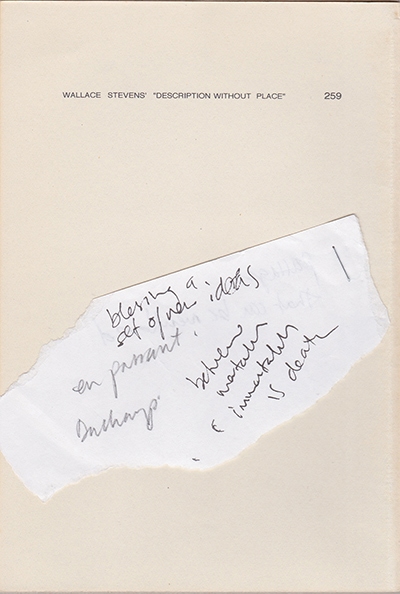 WALLACE STEVENS' "DESCRIPTION WITHOUT PLACE" 259
blessing a
set of new ideas
en passant
Duchamp
between
mortality
& immortality
is death